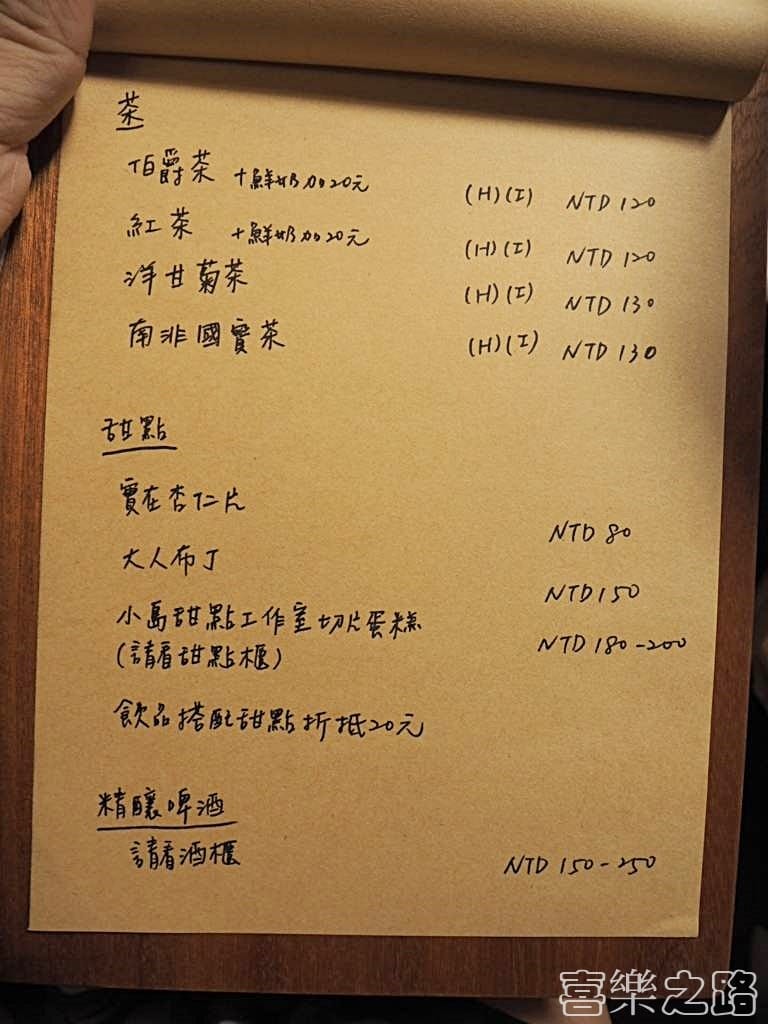 茶
伯爵茶 +鮮奶加20元 (H)(I) NTD 120
紅茶 +鮮奶加20元 (H)(I) NTD 120
洋甘菊茶 (H)(I) NTD 130
南非國寶茶 (H)(I) NTD 130
甜點
實在杏仁片 NTD 80
大人布丁 NTD 150
小島甜點工作室切片蛋糕 NTD 180-200
(請看甜點櫃)
飲品搭配甜點折抵20元
精釀啤酒
請看酒櫃 NTD 150-250
喜樂之路